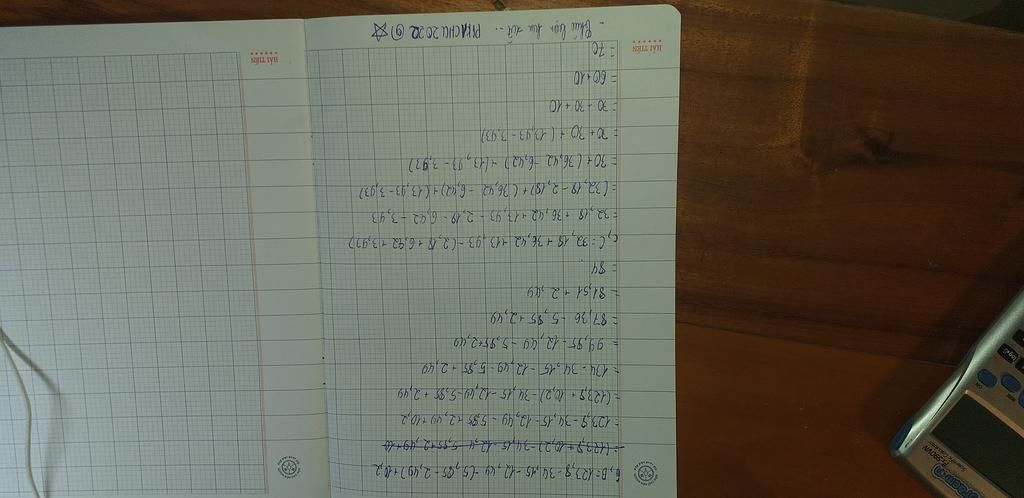 B, B=123,8-34,15-12,49-(5,85-2,49)+10,2
=(123,8+10,2)-34,15-12,4-5,85+2,49+10
=123,8-34,15-12,49-5,85+2,49+10,2
=(123,8+10,2)-34,15-12,49-5,85+2,49
=134-34,15-12,49-5,85+2,49
=99,85-12,49-5,85+2,49
=87,36-5,85+2,49
=81,51+2,49
=84.
c, C=32,18+36,42+13,93-(2,18+6,42+3,93)
=32,18+36,42+13,93-2,18-6,42-3,93
=(32,18-2,18)+(36,42-6,42)+(13,93-3,93)
=30+(36,42-6,42)+(13,93-3,93)
=30+30+(13,93-3,93)
=30+30+10
=60+10
=70
- Chúc bạn học tốt... PIKACHU2022
HẢI TIẾN
HẢI TIẾN